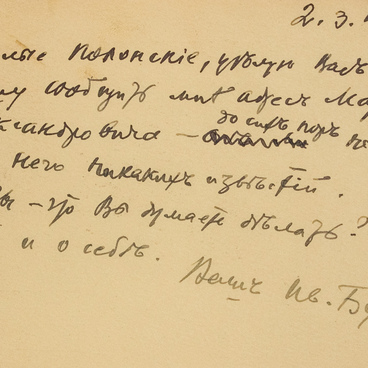 2. 3.
лые Полонскіе, цѣлую Васъ
у сообщить мнѣ адресъ Ма
ксандровича —
до сихъ поръ не
него никакихъ извѣстій.
Вы — что Вы думаете дѣлать?
и о себѣ.
Вашъ Ив. Бу